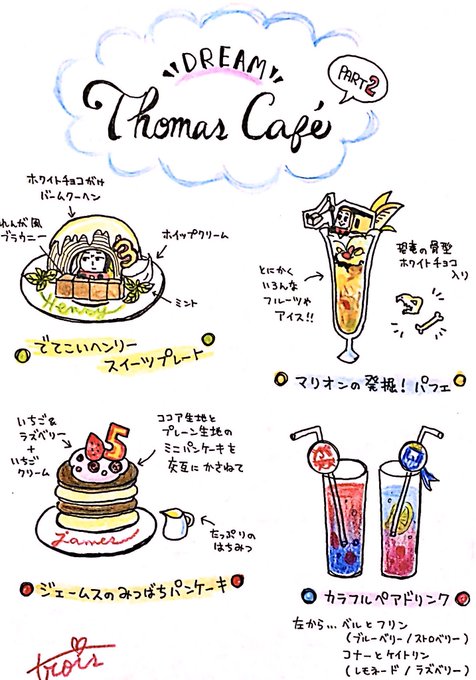 DREAM
Thomas Café
PART2
ホワイトチョコがけ
バームクーヘン
れんが風
ブラウニー
ホイップクリーム
3
ミント
Henry
でてこいヘンリー
スイーツプレート
とにかく
いろんな
フルーツや
アイス!!
恐竜の骨型
ホワイトチョコ
入り
マリオンの発掘！パフェ
いちご&
ラズベリー
+
いちご
クリーム
5
ココア生地と
プレーン生地の
ミニパンケーキを
交互にかさねて
James
たっぷりの
はちみつ
ジェームスのみつばちパンケーキ
カラフルペアドリンク
左から… ベルとフリン
(ブルーベリー/ストロベリー)
コナーとケイトリン
(レモネード/ラズベリー)
trois